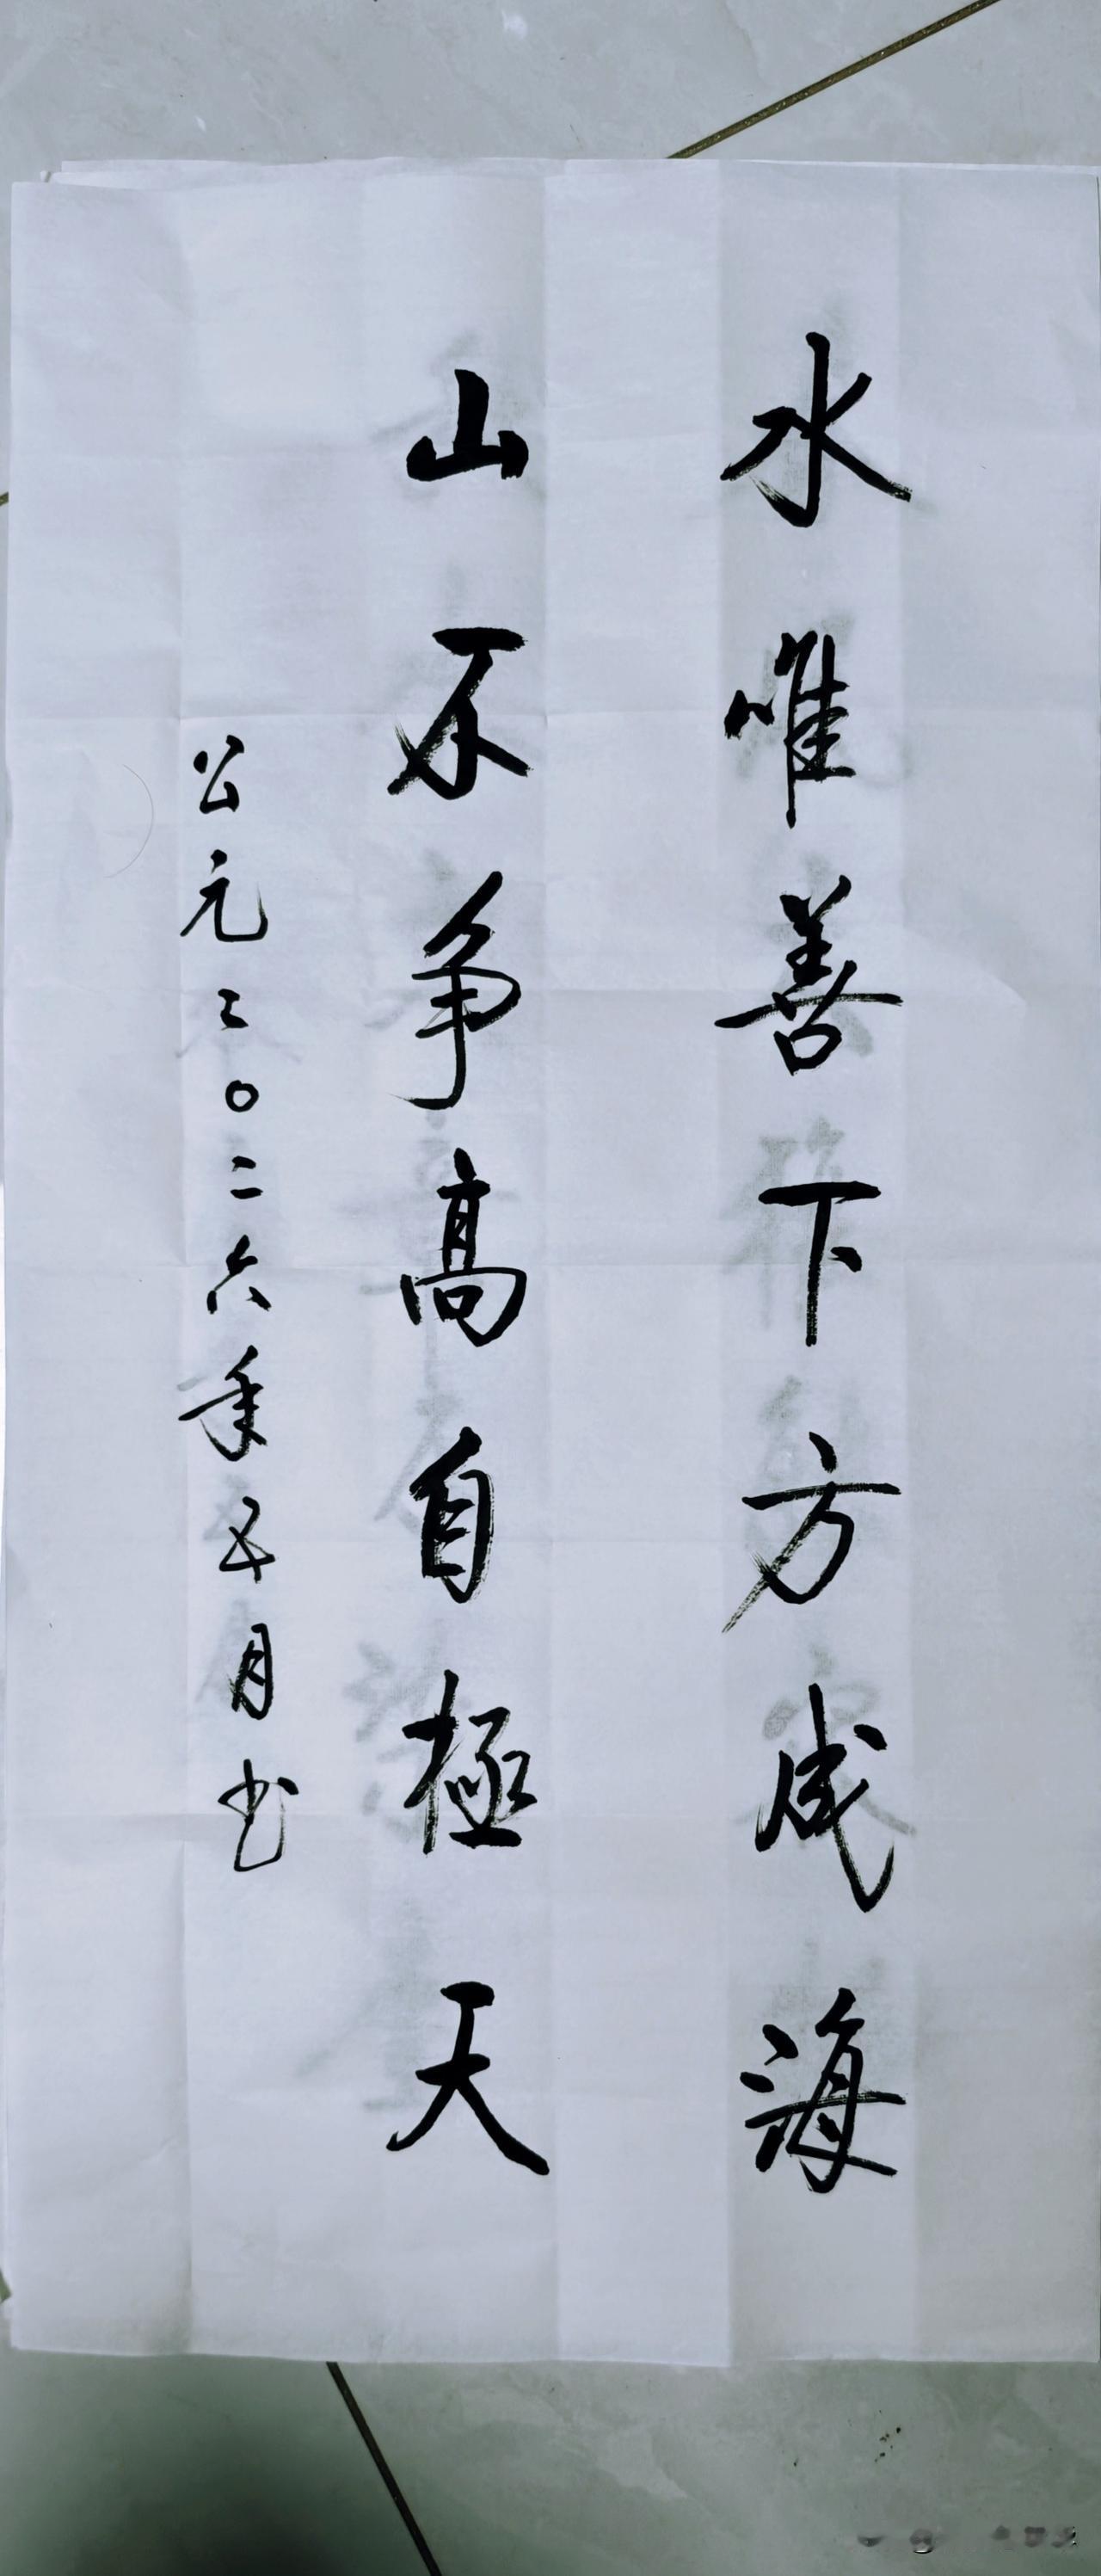 水唯善下方成海
山不争高自極天
公元二〇二六年五月书